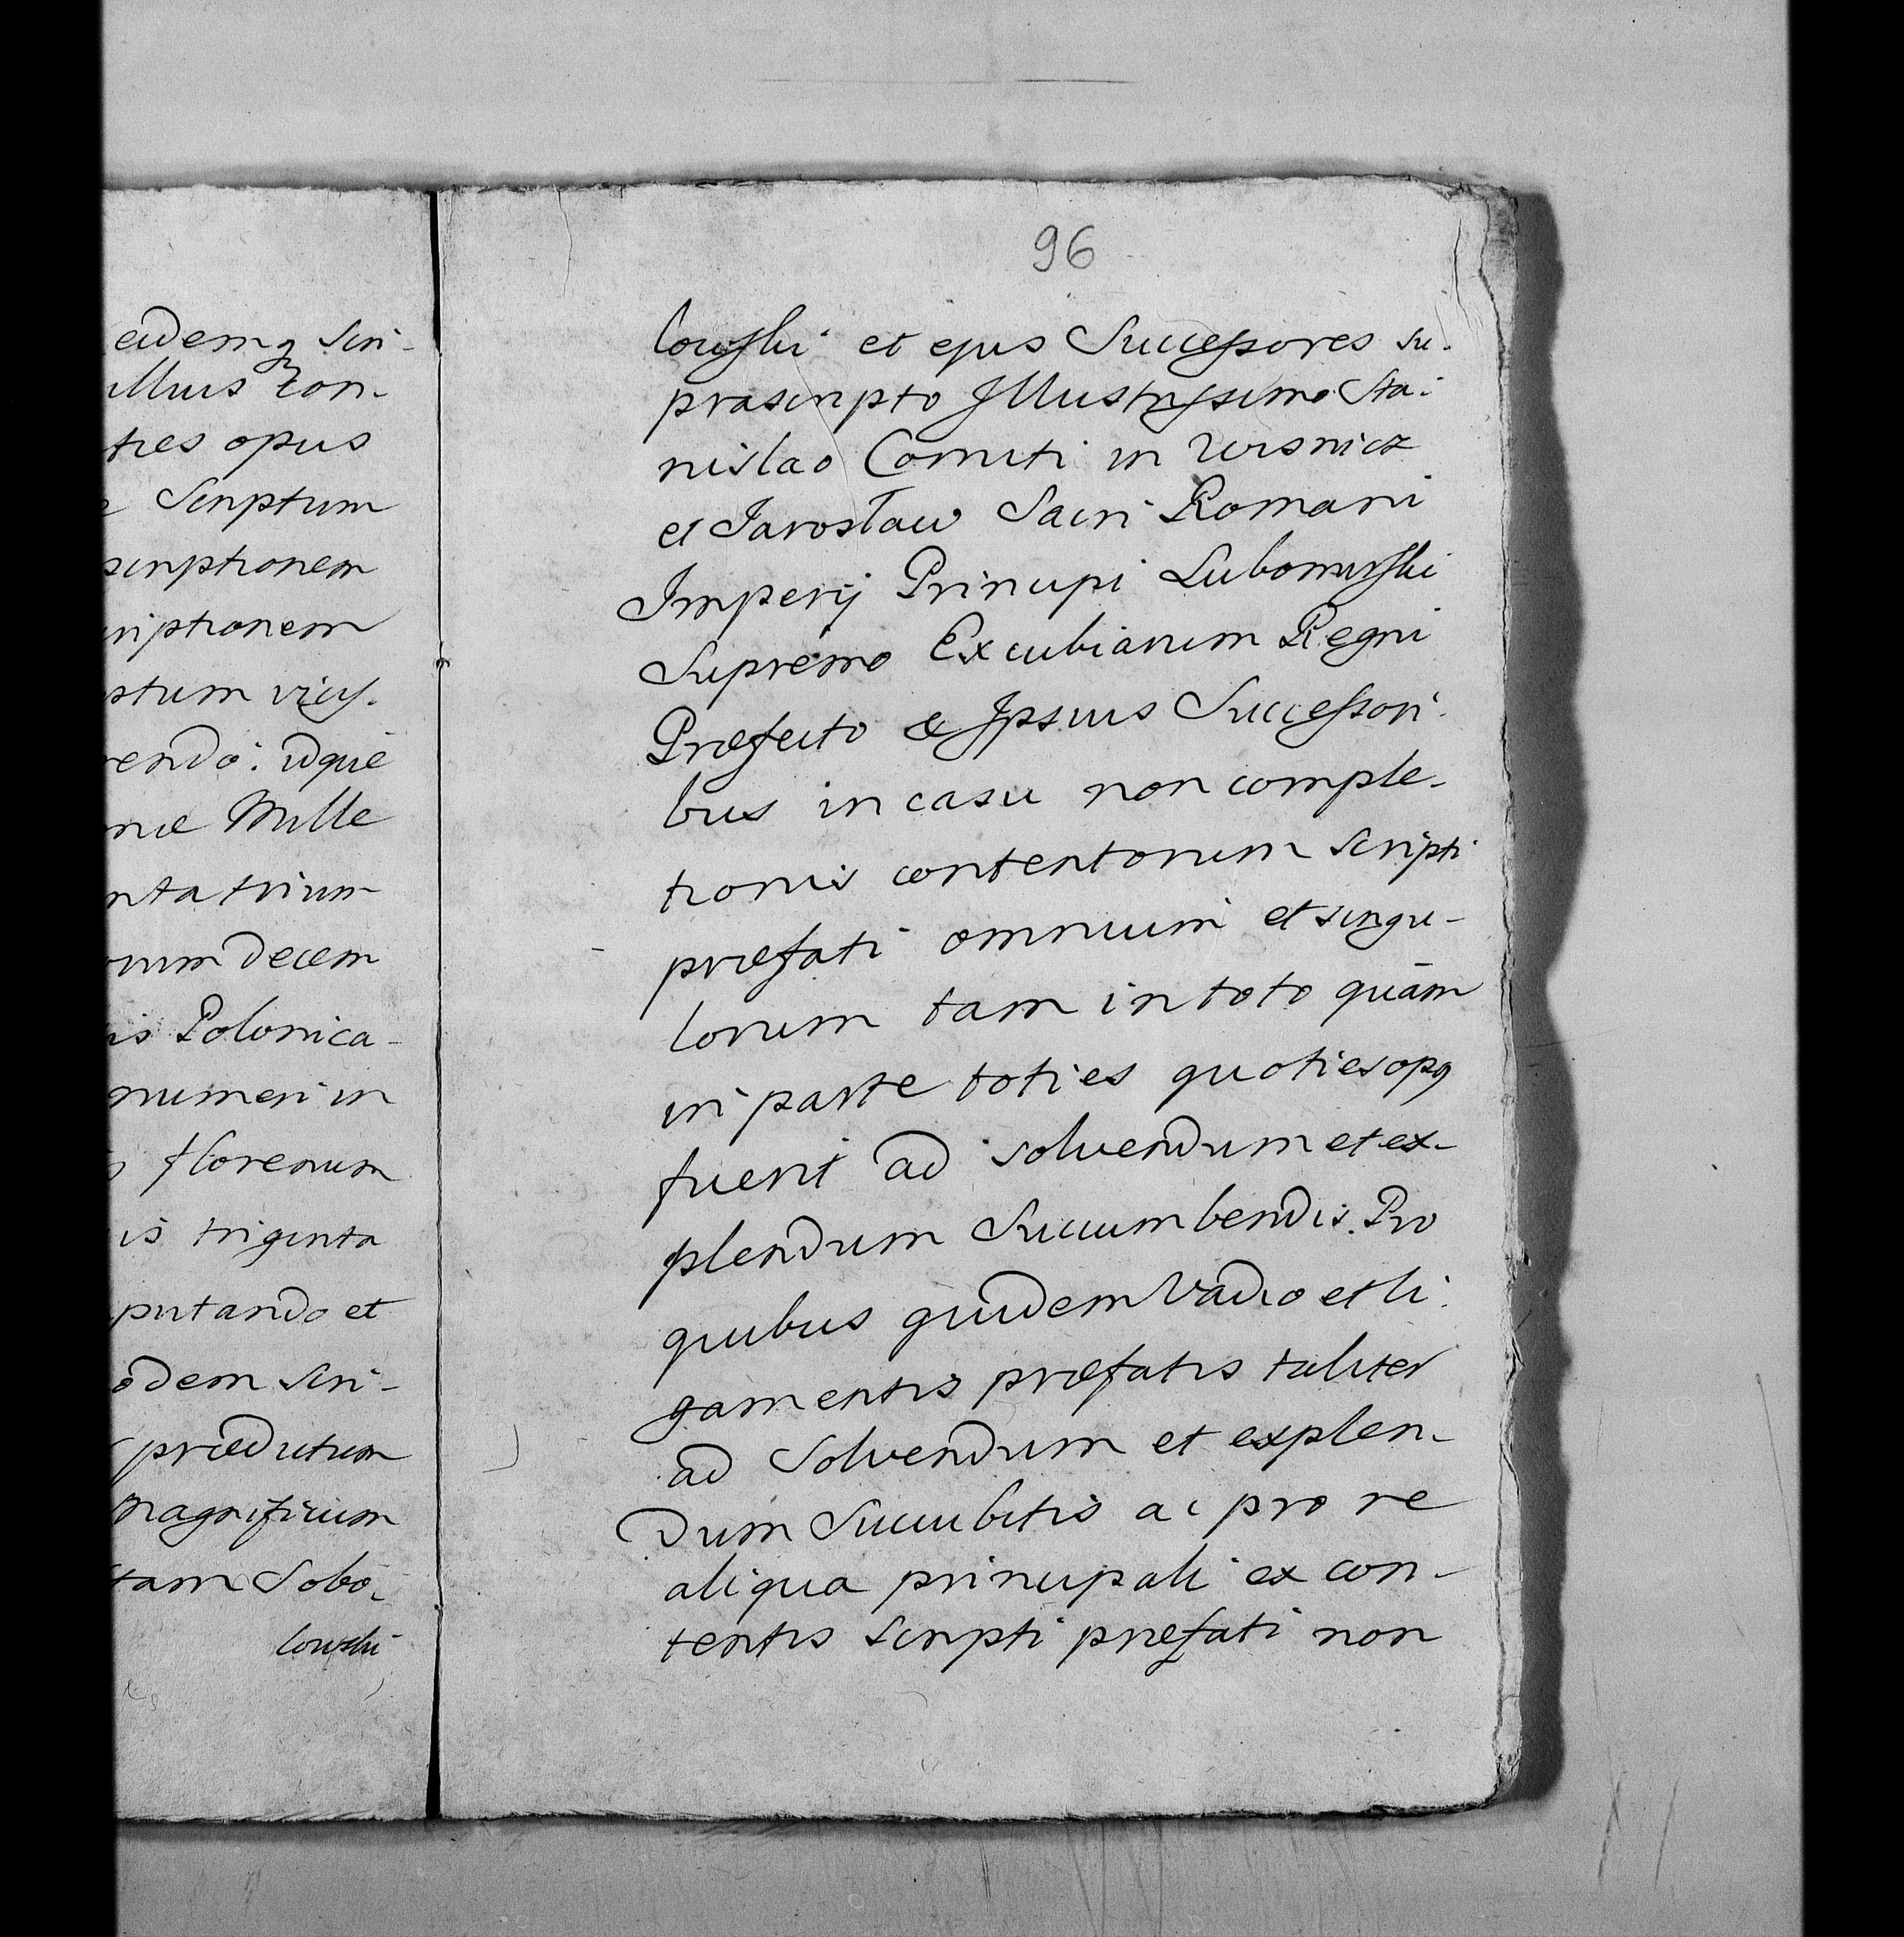 eidemq Scri-
illius con-
tres opus
Scriptum
scriptionem
criptionem
stum
rendo: idque
Mille
nta trium
decem
is Polonica-
numeri in
florenum
is triginta
putando et
odem Scri-
prædictum
magnificum
tam Sobo-
lowski
96
lowski et ejus Successores su-
prascripto Illustrissimo Sta-
nislao Comiti in Wisnicz
et Jarosław Sacri Romani
Imperij Principi Lubomirski
Supremo Excubiarum Regni
Præfecto & Ipsius Successori-
bus in casu non comple-
tionis contentorum scripti
præfati omnium et singu-
lorum tam in toto quàm
in parte toties quoties opq
fuerit ad solvendum et ex-
plendum Succumbendis. Pro
quibus quidem Vadio et li-
gamentis præfatis taliter
ad Solvendum et explen-
dum Succubitis ac pro re
aliqua principali ex con-
tentis scripti præfati non